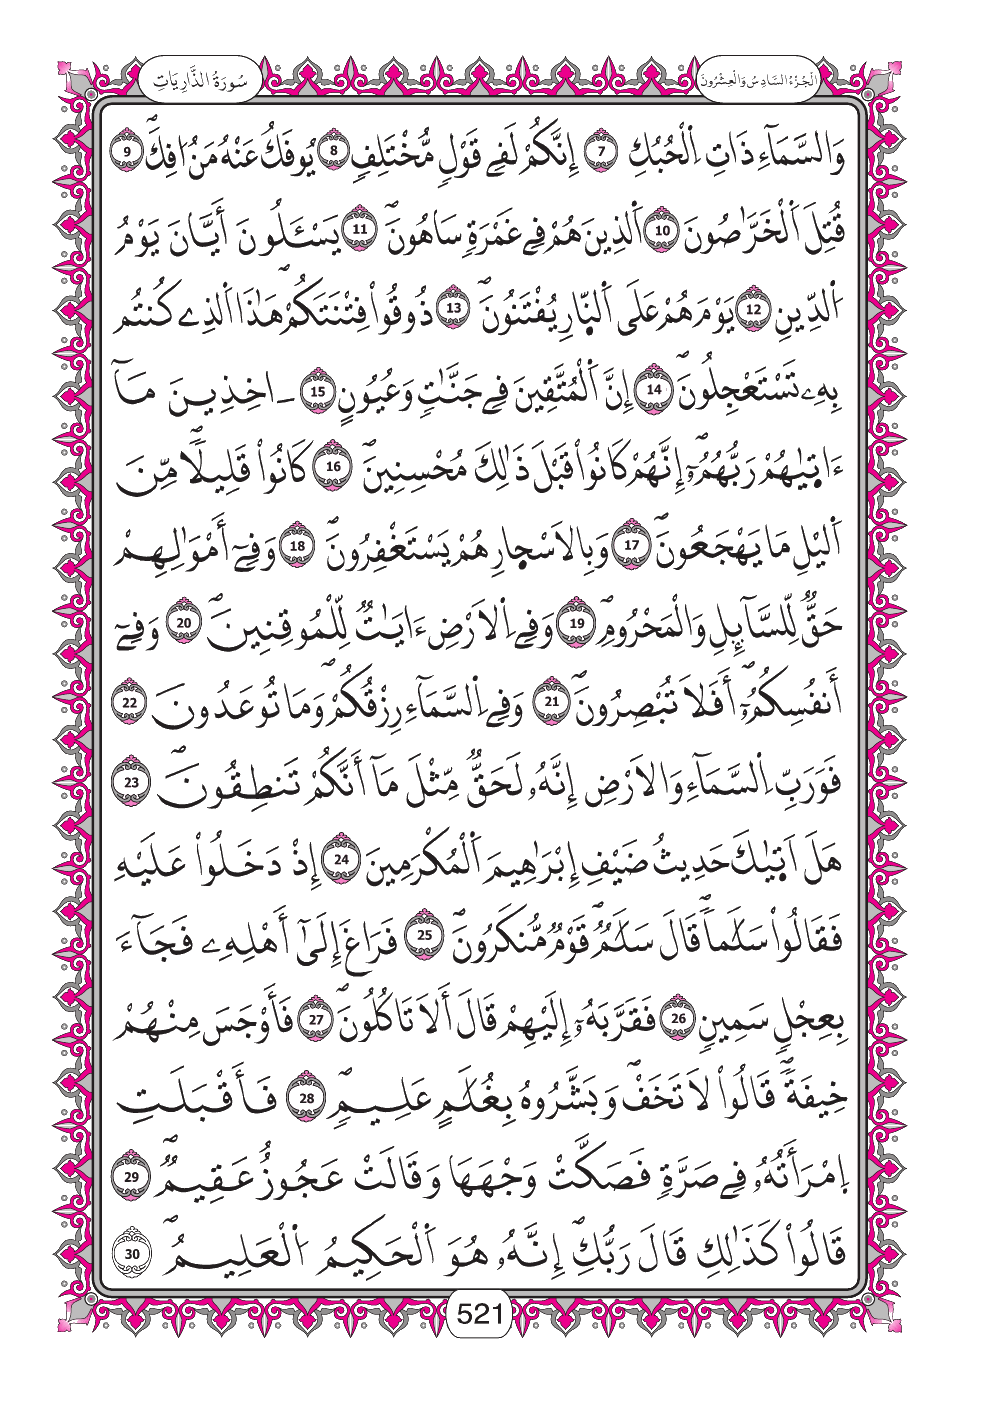 سُورَةُ الذَّارِيَاتِ
الجُزْءُ السَّادِسُ وَالْعِشْرُونَ
وَالسَّمَآءِ ذَاتِ اِ۬لْحُبُكِ 7 إِنَّكُمْ لَفِے قَوْلٖ مُّخْتَلِفٖ 8 يُوفَكُ عَنْهُ مَنُ ا۟فِكَۖ 9
قُتِلَ اَ۬لْخَرَّٰصُونَ 10 اَ۬لذِينَ هُمْ فِے غَمْرَةٖ سَاهُونَۖ 11 يَسْـَٔلُونَ أَيَّانَ يَوْمُ
اُ۬لدِّينِ 12 يَوْمَ هُمْ عَلَى اَ۬لنّ۪ارِ يُفْتَنُونَۖ 13 ذُوقُواْ فِتْنَتَكُمْۖ هَٰذَا اَ۬لذِے كُنتُم
بِهِۦ تَسْتَعْجِلُونَۖ 14 إِنَّ اَ۬لْمُتَّقِينَ فِے جَنَّٰتٖ وَعُيُونٍ 15 ـ اخِذِينَ مَآ
ءَات۪يٰهُمْ رَبُّهُمُۥٓۖ إِنَّهُمْ كَانُواْ قَبْلَ ذَٰلِكَ مُحْسِنِينَۖ 16 كَانُواْ قَلِيلاٗۖ مِّنَ
اَ۬ليْلِ مَا يَهْجَعُونَۖ 17 وَبِالَاسْح۪ارِ هُمْ يَسْتَغْفِرُونَۖ 18 وَفِےٓ أَمْوَٰلِهِمْ
حَقّٞ لِّلسَّآئِلِ وَالْمَحْرُومِۖ 19 وَفِے اِ۬لَارْضِ ءَايَٰتٞ لِّلْمُوقِنِينَۖ 20 وَفِےٓ
أَنفُسِكُمُۥٓۖ أَفَلَا تُبْصِرُونَۖ 21 وَفِے اِ۬لسَّمَآءِ رِزْقُكُمْۖ وَمَا تُوعَدُونَ 22
فَوَرَبِّ اِ۬لسَّمَآءِ وَالَارْضِ إِنَّهُۥ لَحَقّٞ مِّثْلَ مَآ أَنَّكُمْ تَنطِقُونَۖ 23
هَلَ اَت۪يٰكَ حَدِيثُ ضَيْفِ إِبْرَٰهِيمَ اَ۬لْمُكْرَمِينَ 24 إِذْ دَخَلُواْ عَلَيْهِ
فَقَالُواْ سَلَٰماٗۖ قَالَ سَلَٰمٞۖ قَوْمٞ مُّنكَرُونَۖ 25 فَرَاغَ إِلَىٰٓ أَهْلِهِۦ فَجَآءَ
بِعِجْلٖ سَمِينٖ 26 فَقَرَّبَهُۥٓ إِلَيْهِمْ قَالَ أَلَا تَاكُلُونَۖ 27 فَأَوْجَسَ مِنْهُمْ
خِيفَةٗۖ قَالُواْ لَا تَخَفْۖ وَبَشَّرُوهُ بِغُلَٰمٍ عَلِيمٖۖ 28 فَأَقْبَلَتِ
اِ۪مْرَأَتُهُۥ فِے صَرَّةٖ فَصَكَّتْ وَجْهَهَا وَقَالَتْ عَجُوزٌ عَقِيمٞۖ 29
قَالُواْ كَذَٰلِكِ قَالَ رَبُّكِۖ إِنَّهُۥ هُوَ اَ۬لْحَكِيمُ اُ۬لْعَلِيمُۖ 30
521